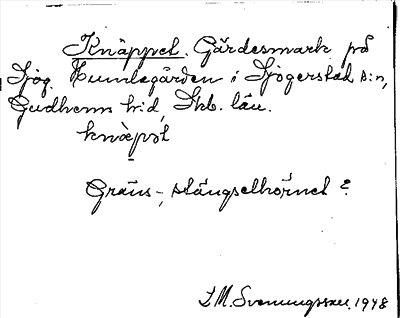 Knäppel. Gärdesmark på
Sjög. Humlegården i Sjögerstad s:n,
Gudhems h:d, Skb. län.
knäpəl
Gräns-, stängselhörnet?
S.M. Svenungsson. 1948